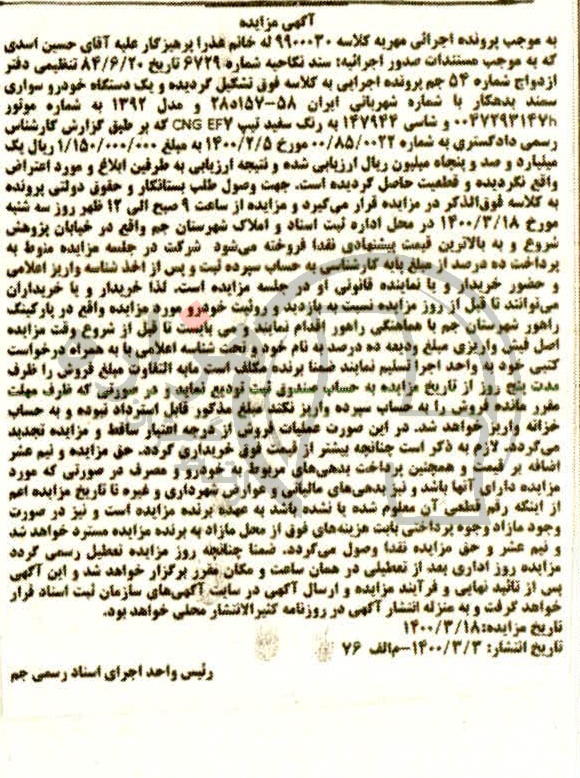 آگهی مزایده
به موجب پرونده اجرائی مهریه کلاسه ۹۹۰۰۰۳۰ له خانم هذرا پرهیزگار علیه آقای حسین اسدی
که به موجب مستندات صدور اجرائیه: سند نکاحیه شماره ۶۷۲۹ تاریخ ۸۴/۶/۲۰ تنظیمی دفتر
ازدواج شماره ۵۴ جم پرونده اجرایی به کلاسه فوق تشکیل گردیده و یک دستگاه خودرو سواری
سمند بدهکار با شماره شهربانی ایران ۵۸-۱۵۷د۲۸ و مدل ۱۳۹۲ به شماره موتور
۰۰۴۷۲۹۳۱۴۷h و شاسی ۱۴۷۹۴۴ به رنگ سفید تیپ CNG EF7 که بر طبق گزارش کارشناس
رسمی دادگستری به شماره ۰۰/۸۵/۰۰۲۲ مورخ ۱۴۰۰/۲/۵ به مبلغ ۱/۱۵۰/۰۰۰/۰۰۰ ریال یک
میلیارد و صد و پنجاه میلیون ریال ارزیابی شده و نتیجه ارزیابی به طرفین ابلاغ و مورد اعتراض
واقع نگردیده و قطعیت حاصل گردیده است. جهت وصول طلب بستانکار و حقوق دولتی پرونده
به کلاسه فوق‌الذکر در مزایده قرار می‌گیرد و مزایده از ساعت ۹ صبح الی ۱۲ ظهر روز سه شنبه
مورخ ۱۴۰۰/۳/۱۸ در محل اداره ثبت اسناد و املاک شهرستان جم واقع در خیابان پژوهش
شروع و به بالاترین قیمت پیشنهادی نقدا فروخته می‌شود شرکت در جلسه مزایده منوط به
پرداخت ده درصد از مبلغ پایه کارشناسی به حساب سپرده ثبت و پس از اخذ شناسه واریز اعلامی
و حضور خریدار و یا نماینده قانونی او در جلسه مزایده است. لذا خریدار و یا خریداران
می‌توانند تا قبل از روز مزایده نسبت به بازدید و روئیت خودرو مورد مزایده واقع در پارکینگ
راهور شهرستان جم با هماهنگی راهور اقدام نمایند و می بایست تا قبل از شروع وقت مزایده
اصل فیش واریزی مبلغ ودیعه ده درصد به نام خود و تحت شناسه اعلامی با به همراه درخواست
کتبی خود به واحد اجرا تسلیم نمایند ضمنا برنده مکلف است مابه التفاوت مبلغ فروش را ظرف
مدت پنج روز از تاریخ مزایده به حساب صندوق ثبت تودیع نماید و در صورتی که ظرف مهلت
مقرر مانده فروش را به حساب سپرده واریز نکند مبلغ مذکور قابل استرداد نبوده و به حساب
خزانه واریز خواهد شد. در این صورت عملیات فروش از درجه اعتبار ساقط و مزایده تجدید
می‌گردد. لازم به ذکر است چنانچه بیشتر از قیمت فوق خریداری گردد. حق مزایده و نیم عشر
اضافه بر قیمت و همچنین پرداخت بدهی‌های مربوط به خودرو و مصرف در صورتی که مورد
مزایده دارای آنها باشد و نیز بدهی‌های مالیاتی و عوارض شهرداری و غیره تا تاریخ مزایده اعم
از اینکه رقم قطعی آن معلوم شده یا نشده باشد به عهده برنده مزایده است و نیز در صورت
وجود مازاد وجوه پرداختی بابت هزینه‌های فوق از محل مازاد به برنده مزایده مسترد خواهد شد
و نیم عشر و حق مزایده نقدا وصول می‌گردد. ضمنا چنانچه روز مزایده تعطیل رسمی گردد
مزایده روز اداری بعد از تعطیلی در همان ساعت و مکان مقرر برگزار خواهد شد و این آگهی
پس از تائید نهایی و فرآیند مزایده و ارسال آگهی در سایت آگهی‌های سازمان ثبت اسناد قرار
خواهد گرفت و به منزله انتشار آگهی در روزنامه کثیرالانتشار محلی خواهد بود.
تاریخ مزایده: ۱۴۰۰/۳/۱۸
تاریخ انتشار: ۱۴۰۰/۳/۳-م‌الف ۷۶
رئیس واحد اجرای اسناد رسمی جم